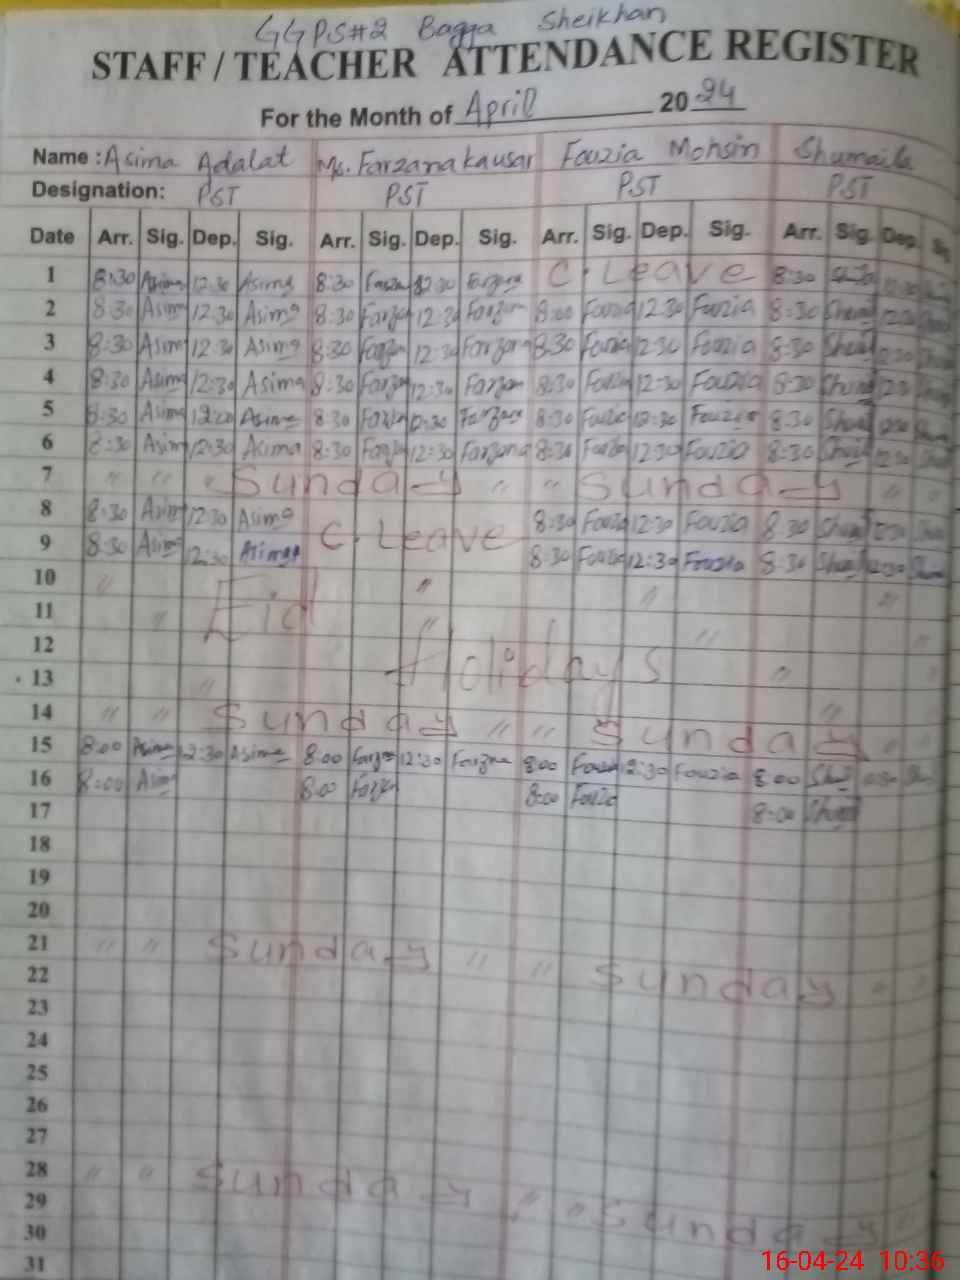 GGPS#2 Bagga Sheikhan
STAFF / TEACHER ATTENDANCE REGISTER
For the Month of April 2024
Name : Asima Adalat Ms. Farzana kausar Fouzia Mohsin Shumaila
Designation: PST PST PST PST
Date Arr. Sig. Dep. Sig. Arr. Sig. Dep. Sig. Arr. Sig. Dep. Sig. Arr. Sig. Dep.
1 8:30 Asima 12:30 Asima 8:30 12:30 Farzana C. Leave 8:30
2 8:30 Asima 12:30 Asima 8:30 Farzan 12:30 Farzan 8:00 Fouzia 12:30 Fouzia 8:30 12:30
3 8:30 Asima 12:30 Asima 8:30 Farzan 12:30 Farzana 8:30 Fouzia 12:30 Fouzia 8:30 12:30
4 8:30 Asima 12:30 Asima 8:30 Farzan 12:30 Farzan 8:30 Fouzia 12:30 Fouzia 8:30 12:30
5 8:30 Asima Asima 8:30 Farzan 12:30 Farzana 8:30 Fouzia 12:30 Fouzia 8:30 12:30
6 8:30 Asima 12:30 Asima 8:30 Farzan 12:30 Farzana 8:30 12:30 Fouzia 8:30 12:30
7 " " " Sunday " " Sunday "
8 8:30 Asima 12:30 Asima C. Leave 8:30 Fouzia 12:30 Fouzia 8:30 12:30
9 8:30 Asima 12:30 Asima 8:30 Fouzia 12:30 Fouzia 8:30 12:30
10 " " " "
11 " Eid "
12 Holidays "
13 " "
14 " " Sunday " " Sunday "
15 8:00 Asima 12:30 Asima 8:00 Farzan 12:30 Farzana 8:00 Fouzia 12:30 Fouzia 8:00
16 8:00 Asima 8:00 Farzan 8:00 Fouzia 8:00
17
18
19
20
21 " " Sunday " " Sunday "
22
23
24
25
26
27
28 " " Sunday " " Sunday "
29
30
31
16-04-24 10:36